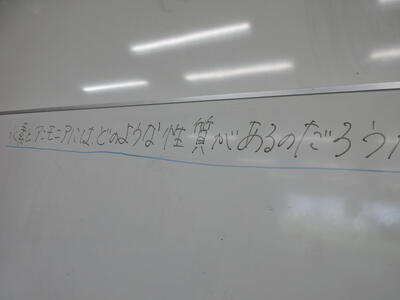 水素とアンモニアには、どのような性質があるのだろうか